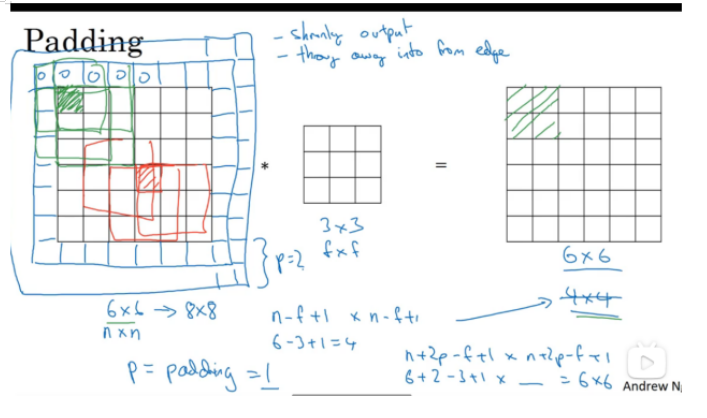 Padding
- shrinky output
- throw away info from edge
0 0 0 0 0
*
=
3 × 3
f × f
p=2
6 × 6
4×4
6×6 → 8×8
n×n
n-f+1 × n-f+1
6-3+1=4
p = padding = 1
n+2p-f+1 × n+2p-f+1
6+2-3+1 × __ = 6×6
Andrew N